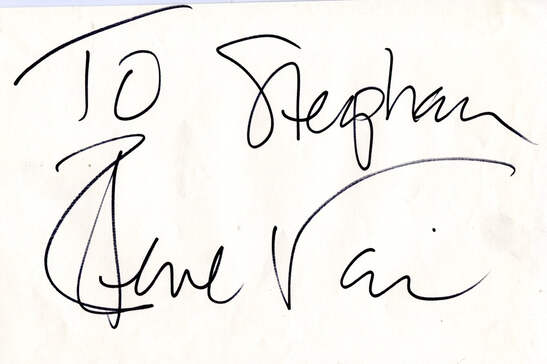 To Stephan
Steve Vai